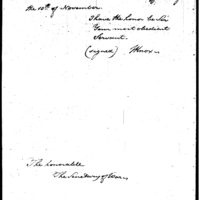 the 10th of November.
I have the honor be Sir
Your most obedient
Servant.
(signed) HKnox
The honorable
The Secretary of War